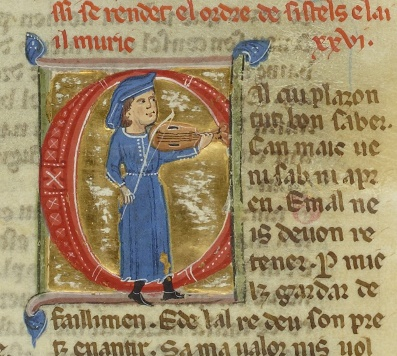 ssi se rendet el ordre de sistels e lai
il muric xxvi.
Cil cui plazon
tuit bon saber.
Can mais ue
ni sab ni apr
en. E mal ne
is deuon re
tener. P mie
lz gardar de
faillimen. E de tal re deu son pre
tz enantir. Sa ma ualor